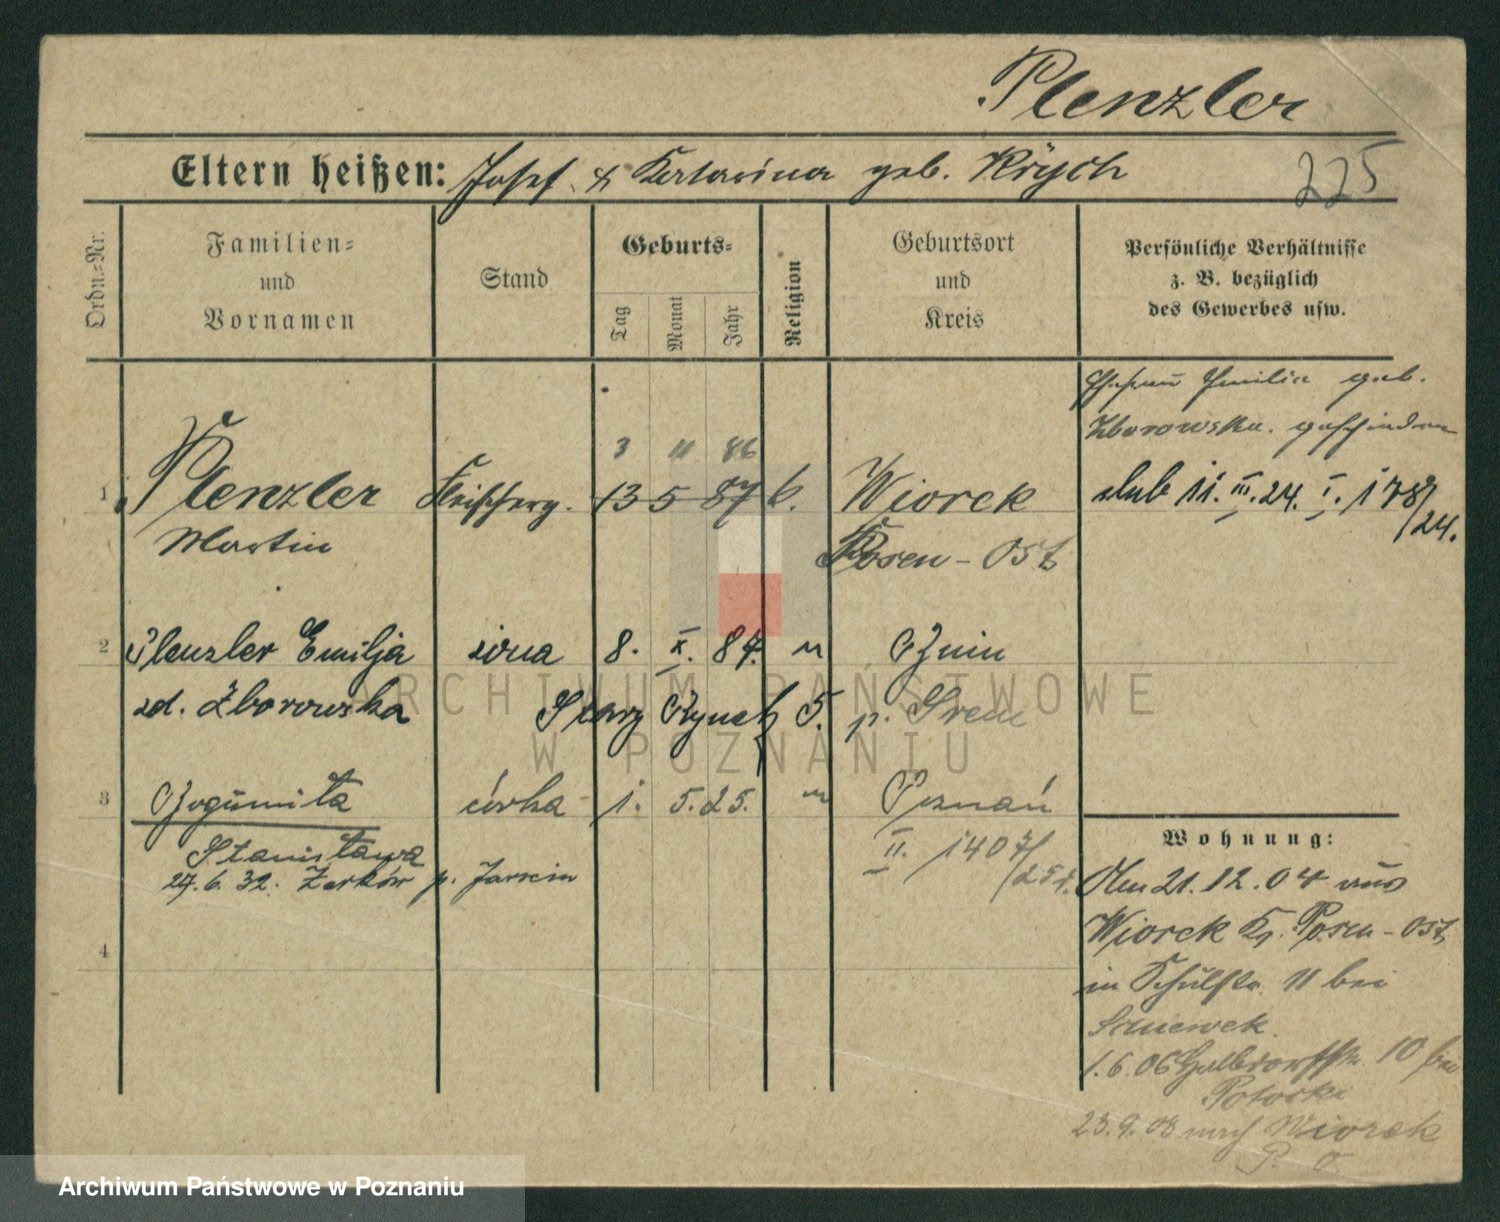 Plenzler
Eltern heißen: Josef & Katarina geb. Krych
225
Ordn.-Nr.
Familien-
und
Vornamen
Stand
Geburts-
Tag
Monat
Jahr
Religion
Geburtsort
und
Kreis
Persönliche Verhältnisse
z. B. bezüglich
des Gewerbes usw.
Ehefrau Emilia geb.
Zborowska. geschieden
3 11 86
1 Plenzler Fleischerg. 13 5 87 k. Wiorek
ślub 11. III. 24. I. 178/24.
Martin Posen-Ost
2 Plenzler Emilja żona 8. X. 87. Żnin
zd. Zborowska Stary Rynek 5. p. Śrem
3 Bogumiła córka 1. 5. 25. Poznań
Stanisława II. 1407/25
27. 6. 32. Żerków p. Jarocin
4
Wohnung:
Den 21.12.04 aus
Wiorek Kr. Posen-Ost
in Schulstr. 11 bei
1.6.06 Halbdorfstr. 10 bei
Potocki
23.9.08 nach Wiorek
P. O.
ARCHIWUM PAŃSTWOWE
W POZNANIU
Archiwum Państwowe w Poznaniu